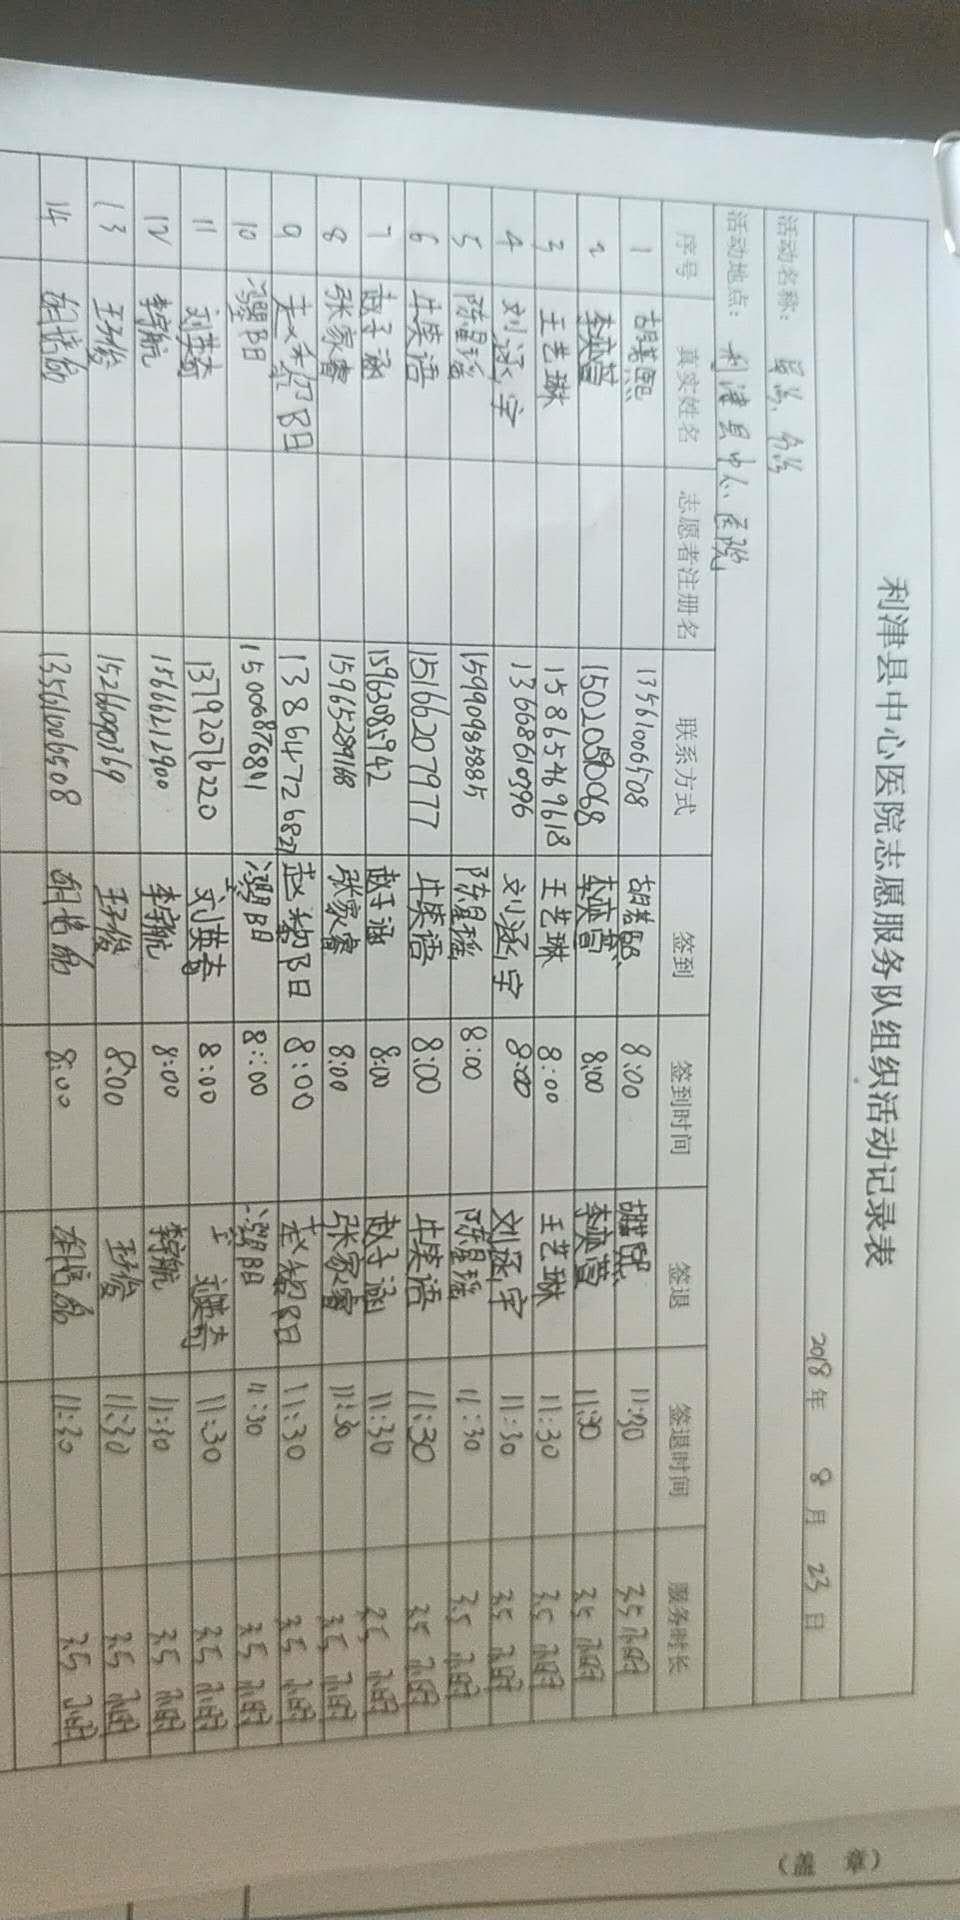 利津县中心医院志愿服务队组织活动记录表
2018年 8月 23日
活动名称: 导
活动地点: 利津县中心医院
序号 真实姓名 志愿者注册名 联系方式 签到 签到时间 签退 签退时间 服务时长
1 13561006508 8:00 11:30 3.5小时
2 李奕萱 15020590068 李奕萱 8:00 李奕萱 11:30 3.5小时
3 王艺琳 15865469618 王艺琳 8:00 王艺琳 11:30 3.5小时
4 刘涵宇 13668610396 刘涵宇 8:00 刘涵宇 11:30 3.5小时
5 陈星瑶 15990985885 陈星瑶 8:00 陈星瑶 11:30 3.5小时
6 15166207977 8:00 11:30 3.5小时
7 赵子涵 15963085942 赵子涵 8:00 赵子涵 11:30 3.5小时
8 张家睿 15965289168 张家睿 8:00 张家睿 11:30 3.5小时
9 13864726827 8:00 11:30 3.5小时
10 15006876801 8:00 11:30 3.5小时
11 刘英奇 13792076220 刘英奇 8:00 刘英奇 11:30 3.5小时
12 李宇航 15666212900 李宇航 8:00 李宇航 11:30 3.5小时
13 15266090369 8:00 11:30 3.5小时
14 13561006508 8:00 11:30 3.5小时
(盖 章)